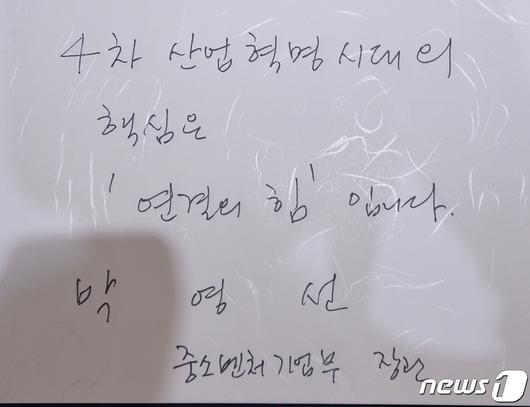 4차 산업혁명시대의
핵심은
'연결의 힘' 입니다.
박 영 선
중소벤처기업부 장관
news1